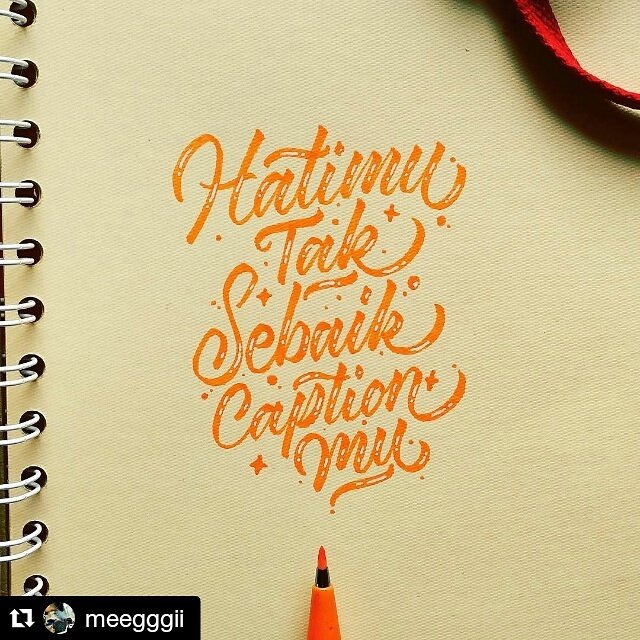 Hatimu
Tak
Sebaik
Caption
mu
meegggii